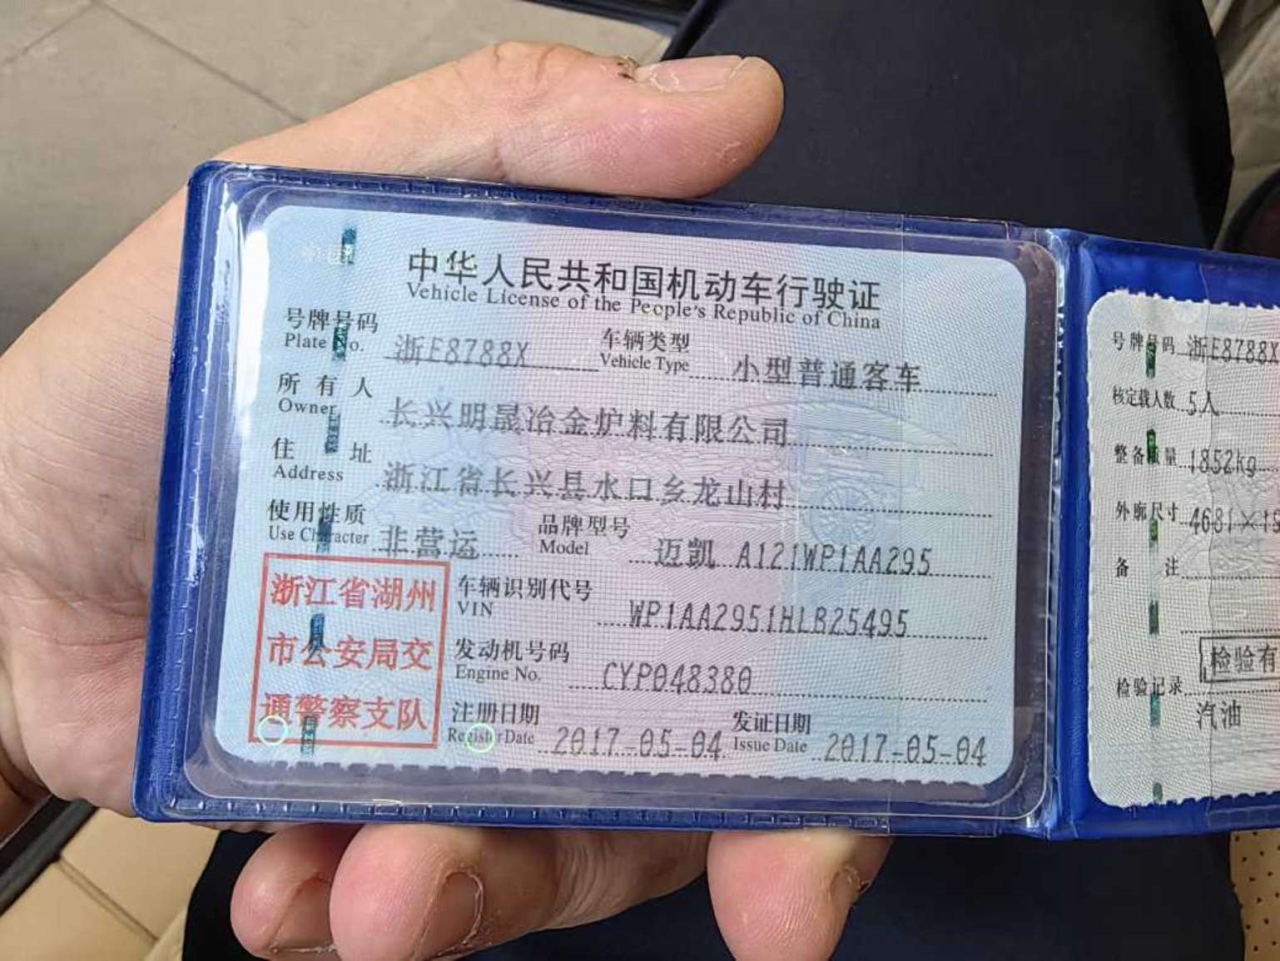 中华人民共和国机动车行驶证
Vehicle License of the People's Republic of China
号牌号码 浙E8788X 车辆类型 小型普通客车
Plate No. Vehicle Type
所有人 长兴明晟冶金炉料有限公司
Owner
住址 浙江省长兴县水口乡龙山村
Address
使用性质 非营运 品牌型号 迈凯 A121WP1AA295
Use Character Model
车辆识别代号 WP1AA2951HLB25495
VIN
发动机号码 CYP048380
Engine No.
注册日期 2017-05-04 发证日期 2017-05-04
Register Date Issue Date
浙江省湖州
市公安局交
通警察支队
号牌号码 浙E8788X
核定载人数 5人
整备质量 1852kg
外廓尺寸 4681×19
备注
检验有
检验记录
汽油